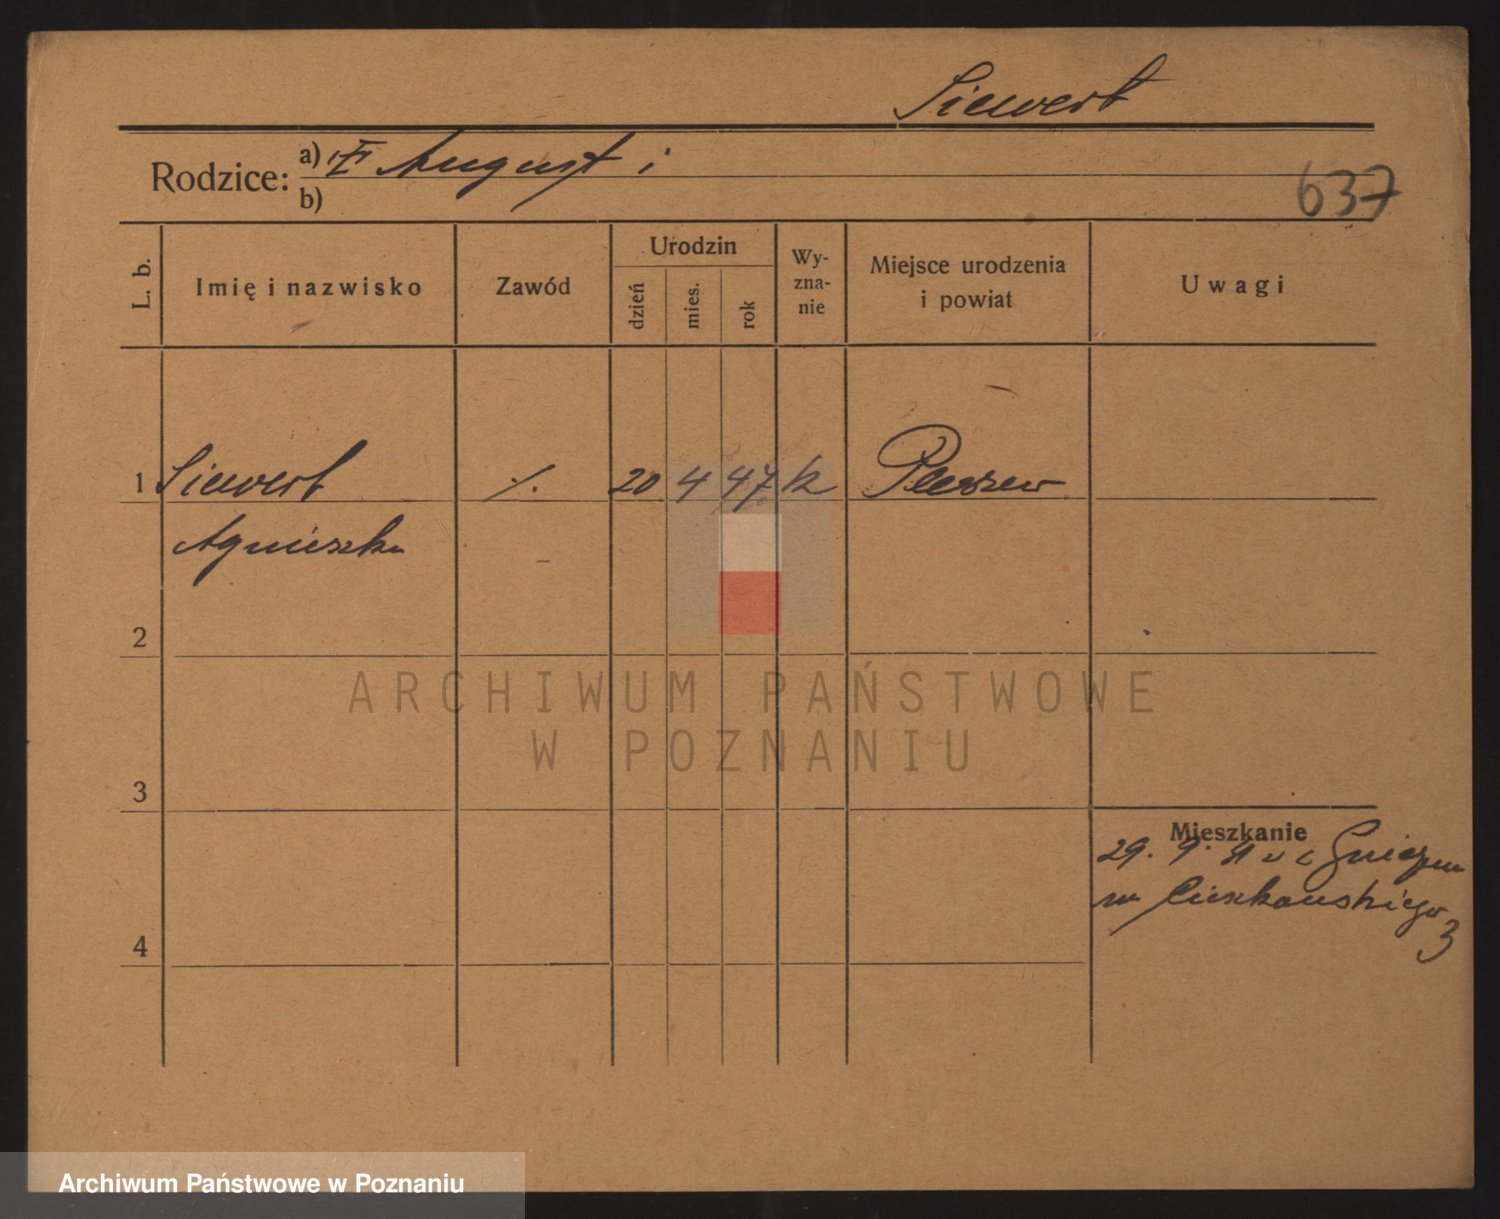 Siewert
Rodzice: a) August i
b)
637
L. b.
Imię i nazwisko
Zawód
Urodzin
dzień
mies.
rok
Wy-
zna-
nie
Miejsce urodzenia
i powiat
Uwagi
1 Siewert ./. 20 4 47 k Pleszew
Agnieszka
2
ARCHIWUM PAŃSTWOWE
W POZNANIU
3
Mieszkanie
29. 9.
Cieszkowskiego
3
4
Archiwum Państwowe w Poznaniu